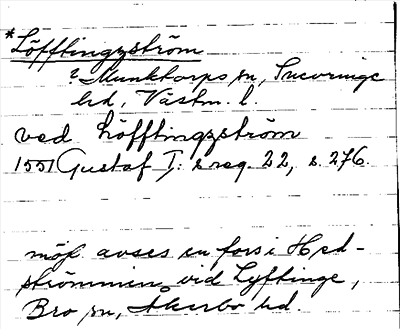 *Löfftingzström
? Munktorps sn, Snevringe
hd, Västm. l.
ved Löfftingzström
1551 Gustaf I: s reg. 22, s. 276.
möjl. avses en fors i Hed-
strömmen vid Lyftinge,
Bro sn, Åkerbo hd.